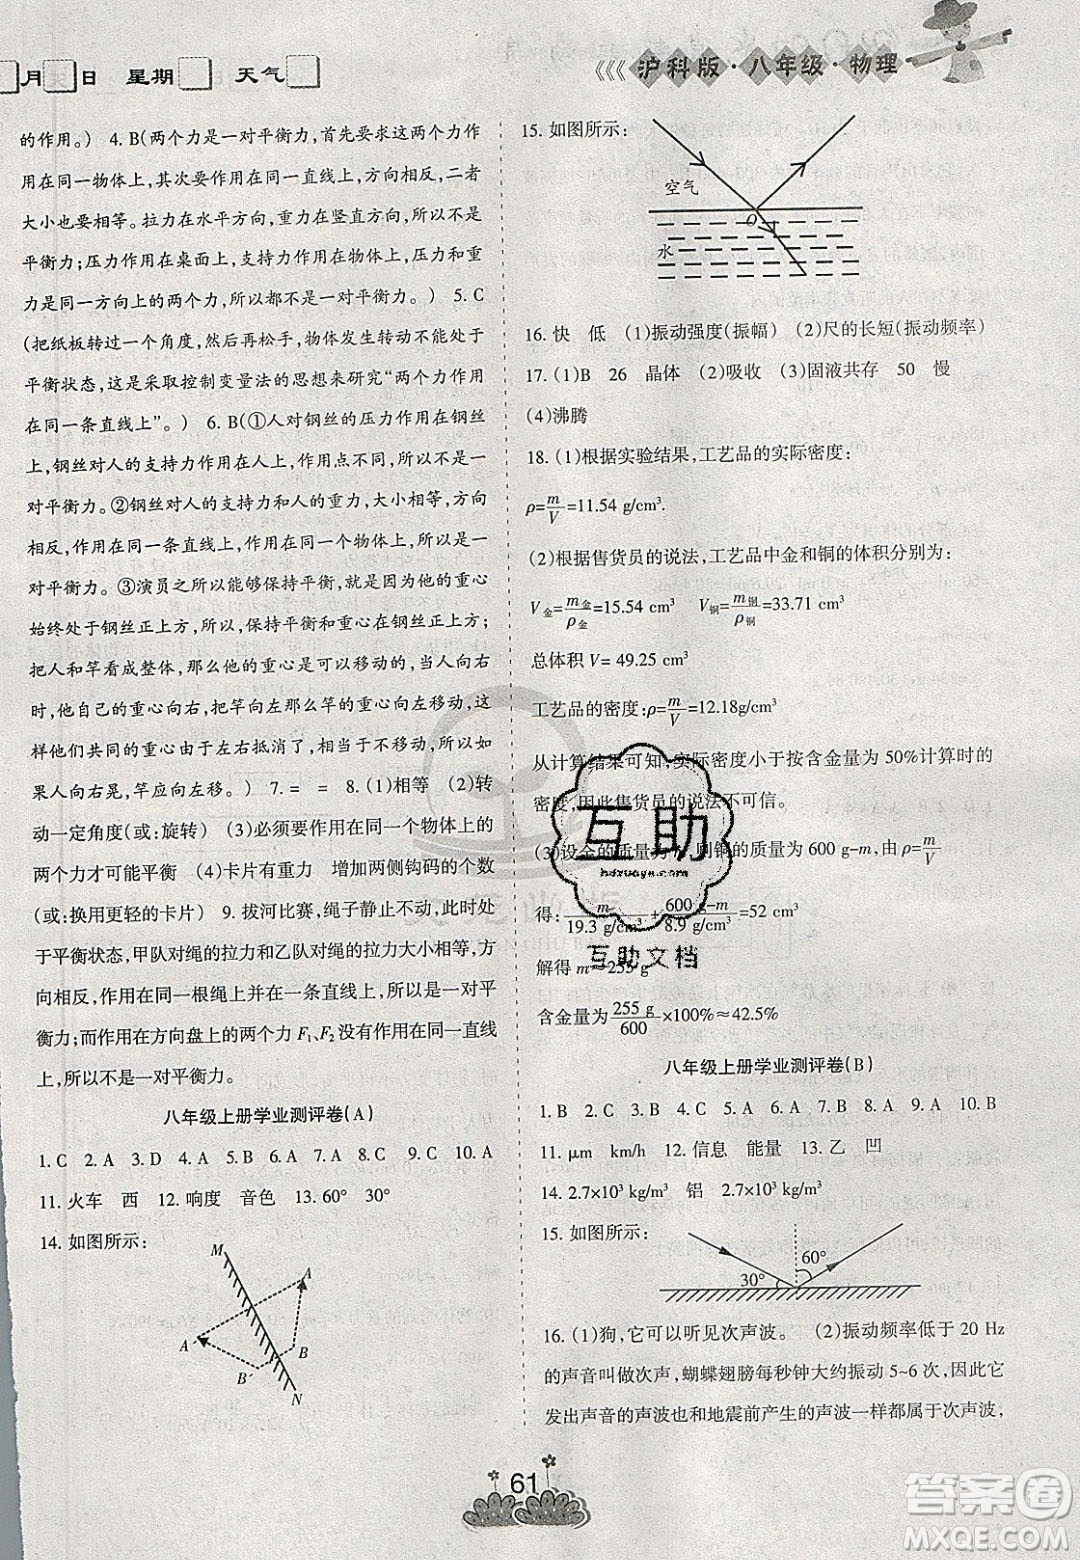 月 日 星期 天气
沪科版·八年级·物理
的作用。) 4. B(两个力是一对平衡力,首先要求这两个力作
用在同一物体上,其次要作用在同一直线上,再相反,二者
大小也要相等。拉力在水平方向,重力在竖直方向,所以不是
平衡力;压力作用在桌面上,支持力作用在物体上,压力和重
力是同一方向上的两个力,所以都不是一对平衡力。) 5. C
(把纸板转过一个角度,然后再松手,物体发生转动不能处于
平衡状态,这是采取控制变量法的思想来研究“两个力作用
在同一条直线上”。) 6. B(①人对钢丝的压力作用在钢丝
上,钢丝对人的支持力作用在人上,作用点不同,所以不是一
对平衡力。②钢丝对人的支持力和人的重力,大小相等,方向
相反,作用在同一条直线上,作用在同一物体上,所以是一
对平衡力。③演员之所以能够保持平衡,是因为他的重心
始终在钢丝正上方,所以,保持平衡和重心在钢丝正上方有关;
把人和竿看成整体,那么他的重心是可以改变的,当人向右
时,他自己的重心向右,把竿向左那么竿的重心向左移动,这
样他们共同的重心由于左右抵消了,相当于不移动,所以如
果人向右晃,竿应向左移。) 7. = = 8. (1)相等 (2)转
动一定角度(或:旋转) (3)必须要作用在同一个物体上的
两个力才可能平衡 (4)卡片有重力 增加两侧钩码的个数
(或:换用更轻的卡片) 9. 拔河比赛,绳子静止不动,此时处
于平衡状态,甲队对绳的拉力和乙队对绳的拉力大小相等,方
向相反,作用在同一根绳上,并且在一条直线上,所以是一对平
衡力;而作用在方向盘上的两个力 F₁、F₂没有作用在同一直线
上,所以不是一对平衡力。
八年级上册学业测评卷(A)
1. C 2. A 3. D 4. A 5. B 6. A 7. B 8. C 9. C 10. A
11. 火车 西 12. 响度 音色 13. 60° 30°
14. 如图所示:
M
A
A′
B
B′
N
15. 如图所示:
空气
O
水
16. 快 低 (1)振动强度(振幅) (2)尺的长短(振动频率)
17. (1)B 26 晶体 (2)吸收 (3)固液共存 50 慢
(4)沸腾
18. (1)根据实验结果,工艺品的实际密度:
ρ=m/V=11.54 g/cm³.
(2)根据售货员的说法,工艺品中金和铜的体积分别为:
V金=m金/ρ金=15.54 cm³ V铜=m铜/ρ铜=33.71 cm³
总体积 V= 49.25 cm³
工艺品的密度:ρ=m/V=12.18g/cm³
从计算结果可知,实际密度小于按含金量为 50%计算时的
密度,因此售货员的说法不可信。
(3)设金的质量为 则铜的质量为 600 g-m,由 ρ=m/V
得:m/19.3 g/cm³+600 g-m/8.9 g/cm³=52 cm³
解得 m=255 g
含金量为255 g/600×100%≈42.5%
八年级上册学业测评卷(B)
1. B 2. C 3. C 4. B 5. B 6. A 7. B 8. C 9. A 10. B
11. μm km/h 12. 信息 能量 13. 乙 凹
14. 2.7×10³ kg/m³ 铝 2.7×10³ kg/m³
15. 如图所示:
30°
60°
16. (1)狗,它可以听见次声波。 (2)振动频率低于 20 Hz
的声音叫做次声,蝴蝶翅膀每秒钟大约振动 5~6 次,因此它
发出声音的声波也和地震前产生的声波一样都属于次声波,
61
互助
hdzuoye.com
互助文档
答案圈
MXQE.COM